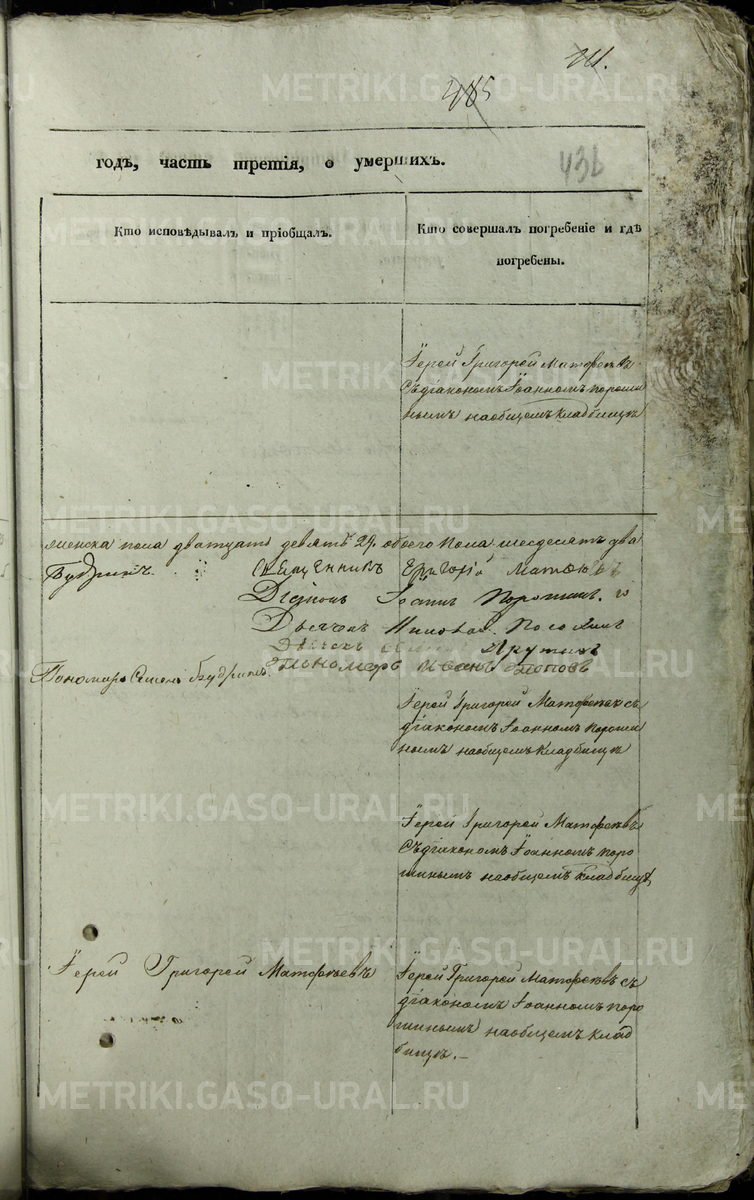 485
436
годъ, часть третія, о умершихъ.
Кто исповѣдывалъ и пріобщалъ.
Кто совершалъ погребеніе и гдѣ
погребены.
Іерей Григорей Матфѣевъ
съ діакономъ Іоанномъ пороши
нымъ на общемъ кладбищѣ
женска пола дватцать девять 29. обоего пола шесдесятъ два
Священникъ Григорій Матфѣевъ
Діаконъ Іоаннъ Порошин.
Дьячекъ
Дьячекъ
Пономаръ Семенъ
Пономарь Иванъ Поповъ
Іерей Григорей Матфѣевъ съ
діакономъ Іоанномъ пороши
нымъ на общемъ кладбищѣ
Іерей Григорей Матфѣевъ
съ діакономъ Іоанномъ поро
шинымъ на общемъ кладбищѣ
Іерей Григорей Матфѣевъ
Іерей Григорей Матфѣевъ съ
діакономъ Іоанномъ поро
шинымъ на общемъ клад
бищѣ.
METRIKI.GASO-URAL.RU